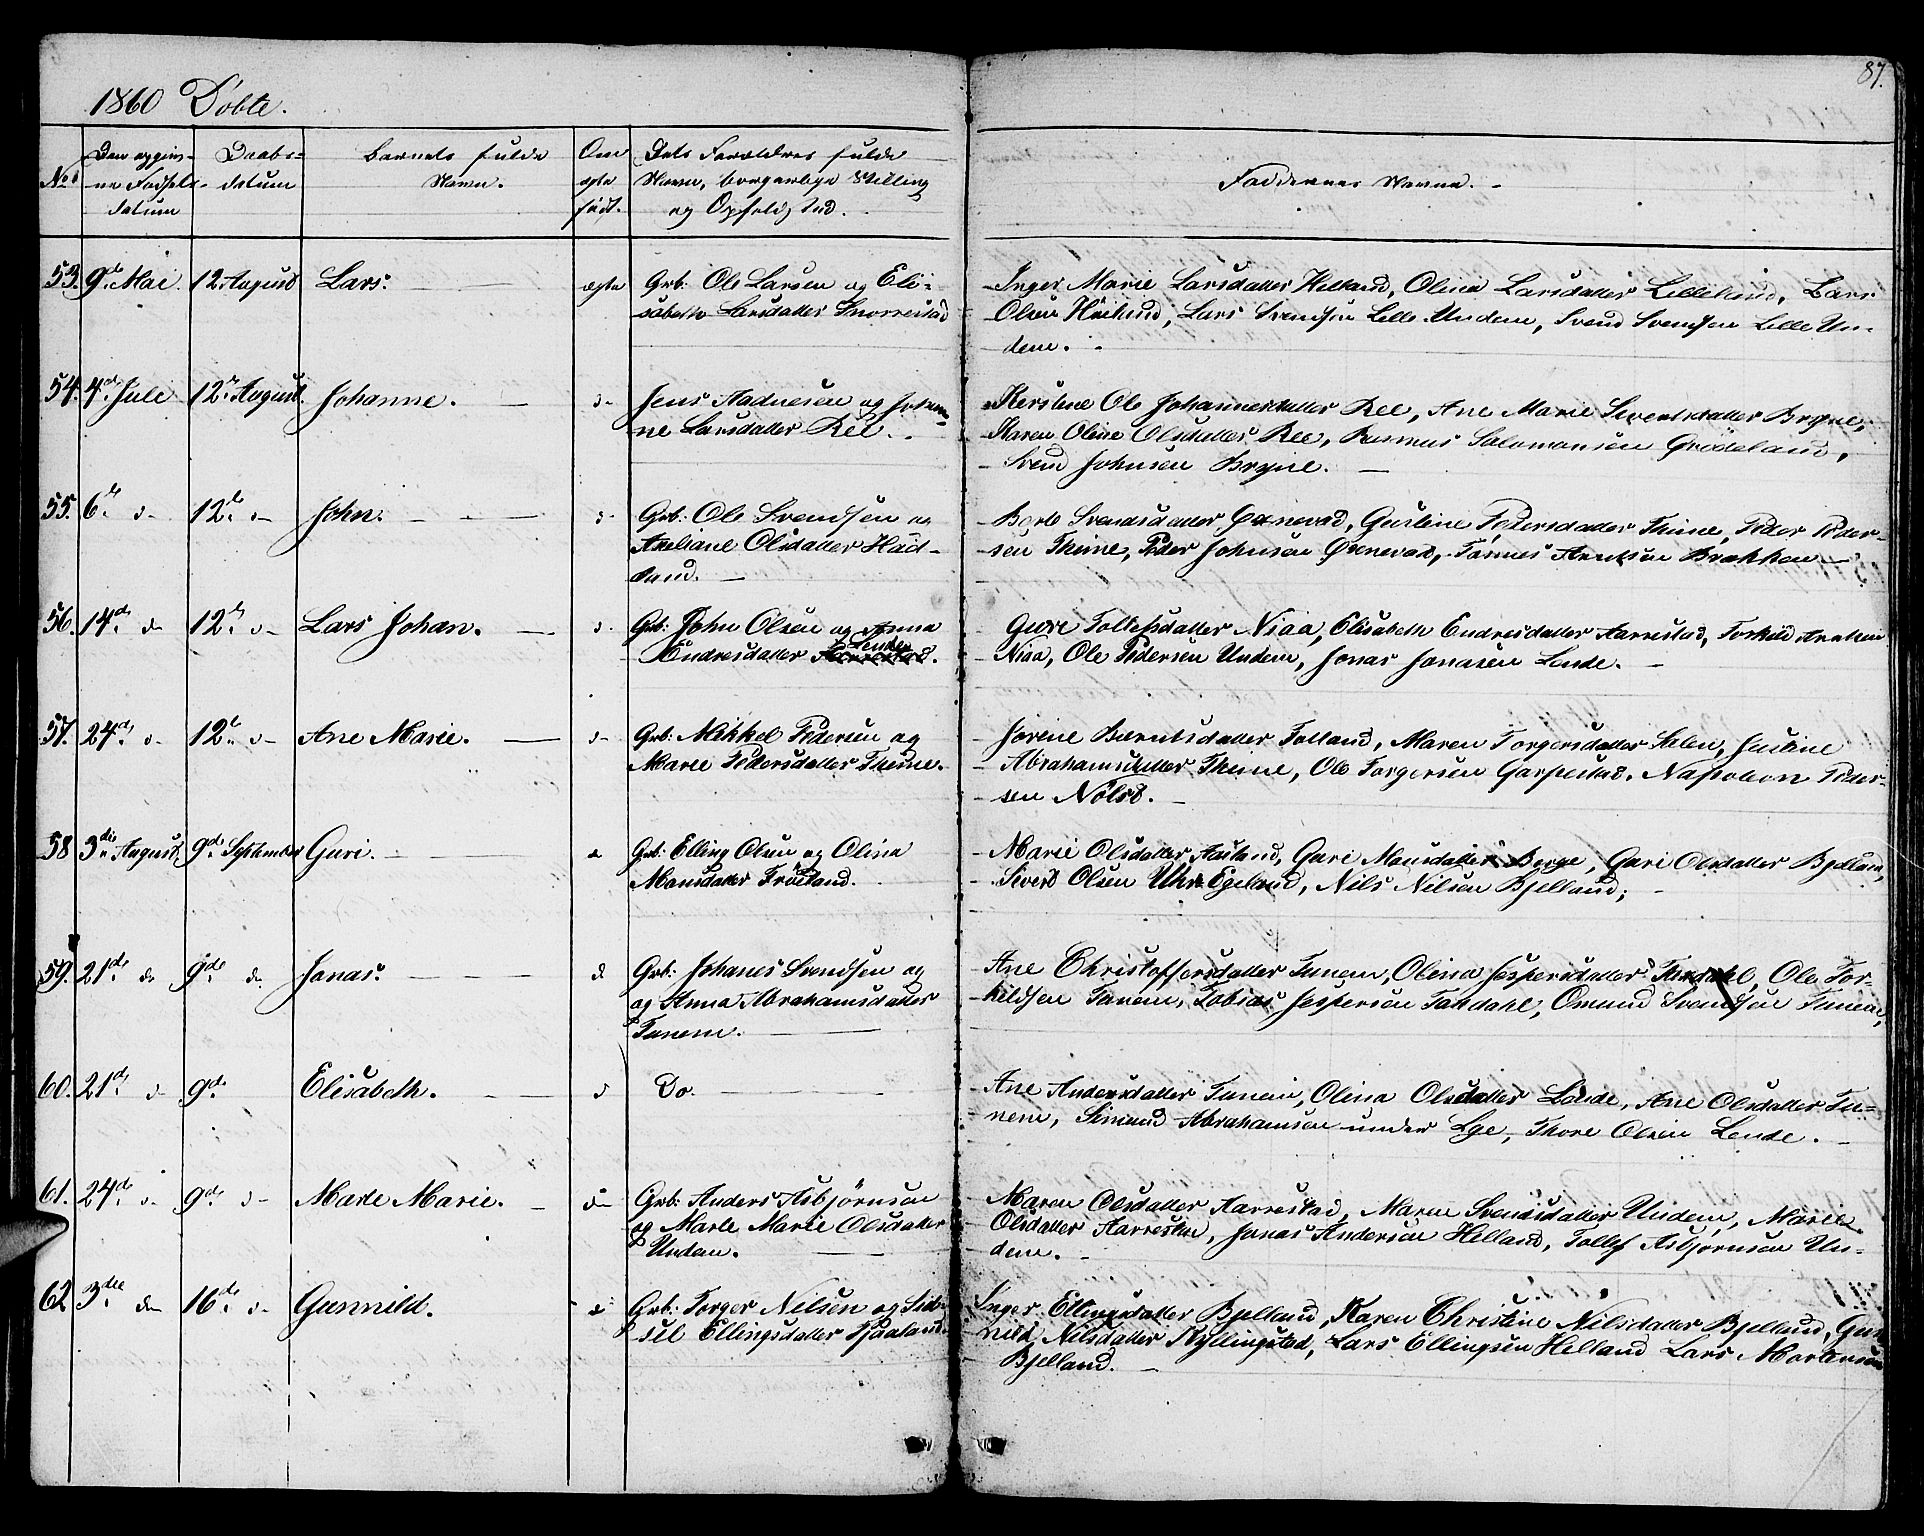 87.
1860 Döbte.
No
Den opgivne Fødselsdatum
Daabsdatum
Barnets fulde Navn.
Om ægte født.
Dets Forældres fulde Navn, borgerlige Stilling og Opholdssted.
Faddernes Navne.
53. 9de Mai 12 August Lars. ægte Grb: Ole Larsen og Eli-
sabeth Larsdatter Snorrestad
Inger Marie Larsdatter Helland, Olina Larsdatter Lilleland, Lars
Olsen, Lars Svendsen Lille Undem, Svend Svendsen Lille Un-
dem.
54. 4de Juli 12te August. Johanne. d-
Jens Aadnesen og Johan-
ne Larsdatter Ree.
Kerstine Ole Johannesdatter Ree, Ane Marie Sivertsdatter Bryne,
Karen Oline Olsdatter Ree, Rasmus Salomonsen Grödeland,
Svend Johnsen Bryne.
55. 6te d- 12te d- John. d-
Grb: Ole Svendsen og
Anehane Olsdatter Had-
land.
Berte Svendsdatter Oxnevad, Gustine Pedersdatter Thime, Peder Peder-
sen Thime, Peder Johnsen Oxnevad, Tønnes Brekken
56. 14de do 12te d- Lars Johan. d-
Grb: John Olsen og Anna
Lende
Endresdatter Aarrestad.
Guri Tollefsdatter Niaa, Elisabeth Endresdatter Aarrestad, Torkild
Niaa, Ole Pedersen Undem, Jonas Jonasen Lende.
57. 24de d- 12te d- Ane Marie. d-
Grb: Mikkel Pedersen og
Marie Pedersdatter Thime.
Jorine Berntsdatter Folland, Maren Torgersdatter Selen, Justine
Abrahamsdatter Thime, Ole Torgersen Garpestad. Napoleon Peder-
sen Nölst.
58 3die August, 9de September Guri.
Grb: Elling Olsen og Olina
Monsdatter Tröiland.
Marie Olsdatter Aasland, Guri Monsdatter Berge, Guri Olsdatter Bjelland,
Sivert Olsen Uhr Egeland, Nils Nilsen Bjelland;
59. 21de do 9de do Jonas. d
Grb: Johanes Svendsen og
og Anna Abrahamsdatter
Tunem.
Ane Christoffersdatter Tunem, Olina Jespersdatter Taxdahl, Ole Tor-
kildsen Tunem, Tobias Jespersen Taxdahl, Omund Svendsen Tunem,
60. 21de d- 9de Elisabeth. d
Do.
Ane Andersdatter Tunem, Olina Olsdatter Lende, Ane Olsdatter Tu-
nem, Simund Abrahamsen under Lge, Thore Olsen Lende.
61. 24de d- 9de d- Marte Marie. d-
Grb: Anders Asbjörnsen
og Marte Marie Olsdatter
Undem.
Maren Olsdatter Aarrestad, Maren Svendsdatter Undem, Marie
Olsdatter Aarrestad, Jonas Andersen Helland, Tollef Asbjörnsen Un-
dem.
62 3die do 16de d- Gunnild.
Grb: Torger Nilsen og Sid-
sel Ellingsdatter Tjaaland.
Inger Ellingsdatter Bjelland, Karen Christine Nilsdatter Bjelland, Gun-
nild Nilsdatter Kyllingstad, Lars Ellingsen Helland Lars Mortensen
Bjelland.